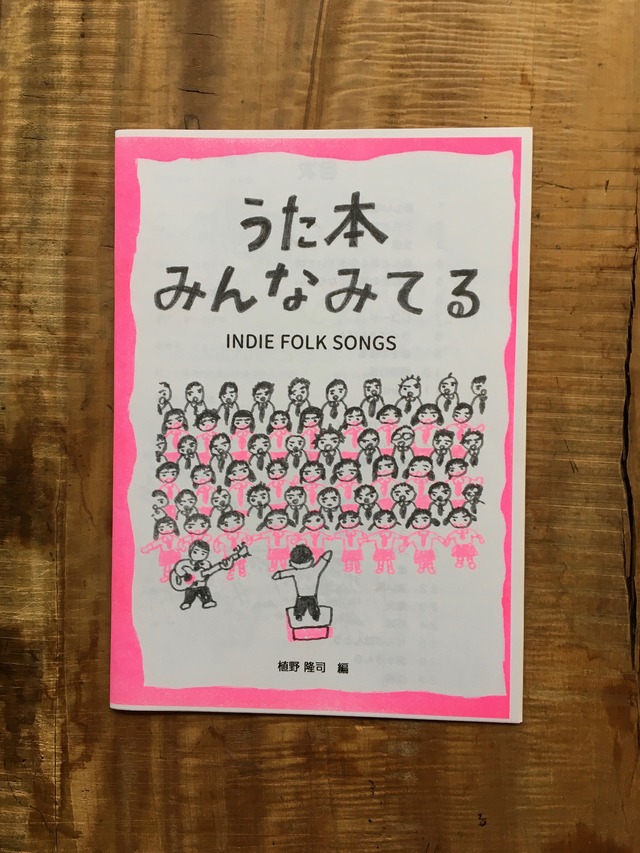 うた本
みんなみてる
INDIE FOLK SONGS
植野 隆司　編